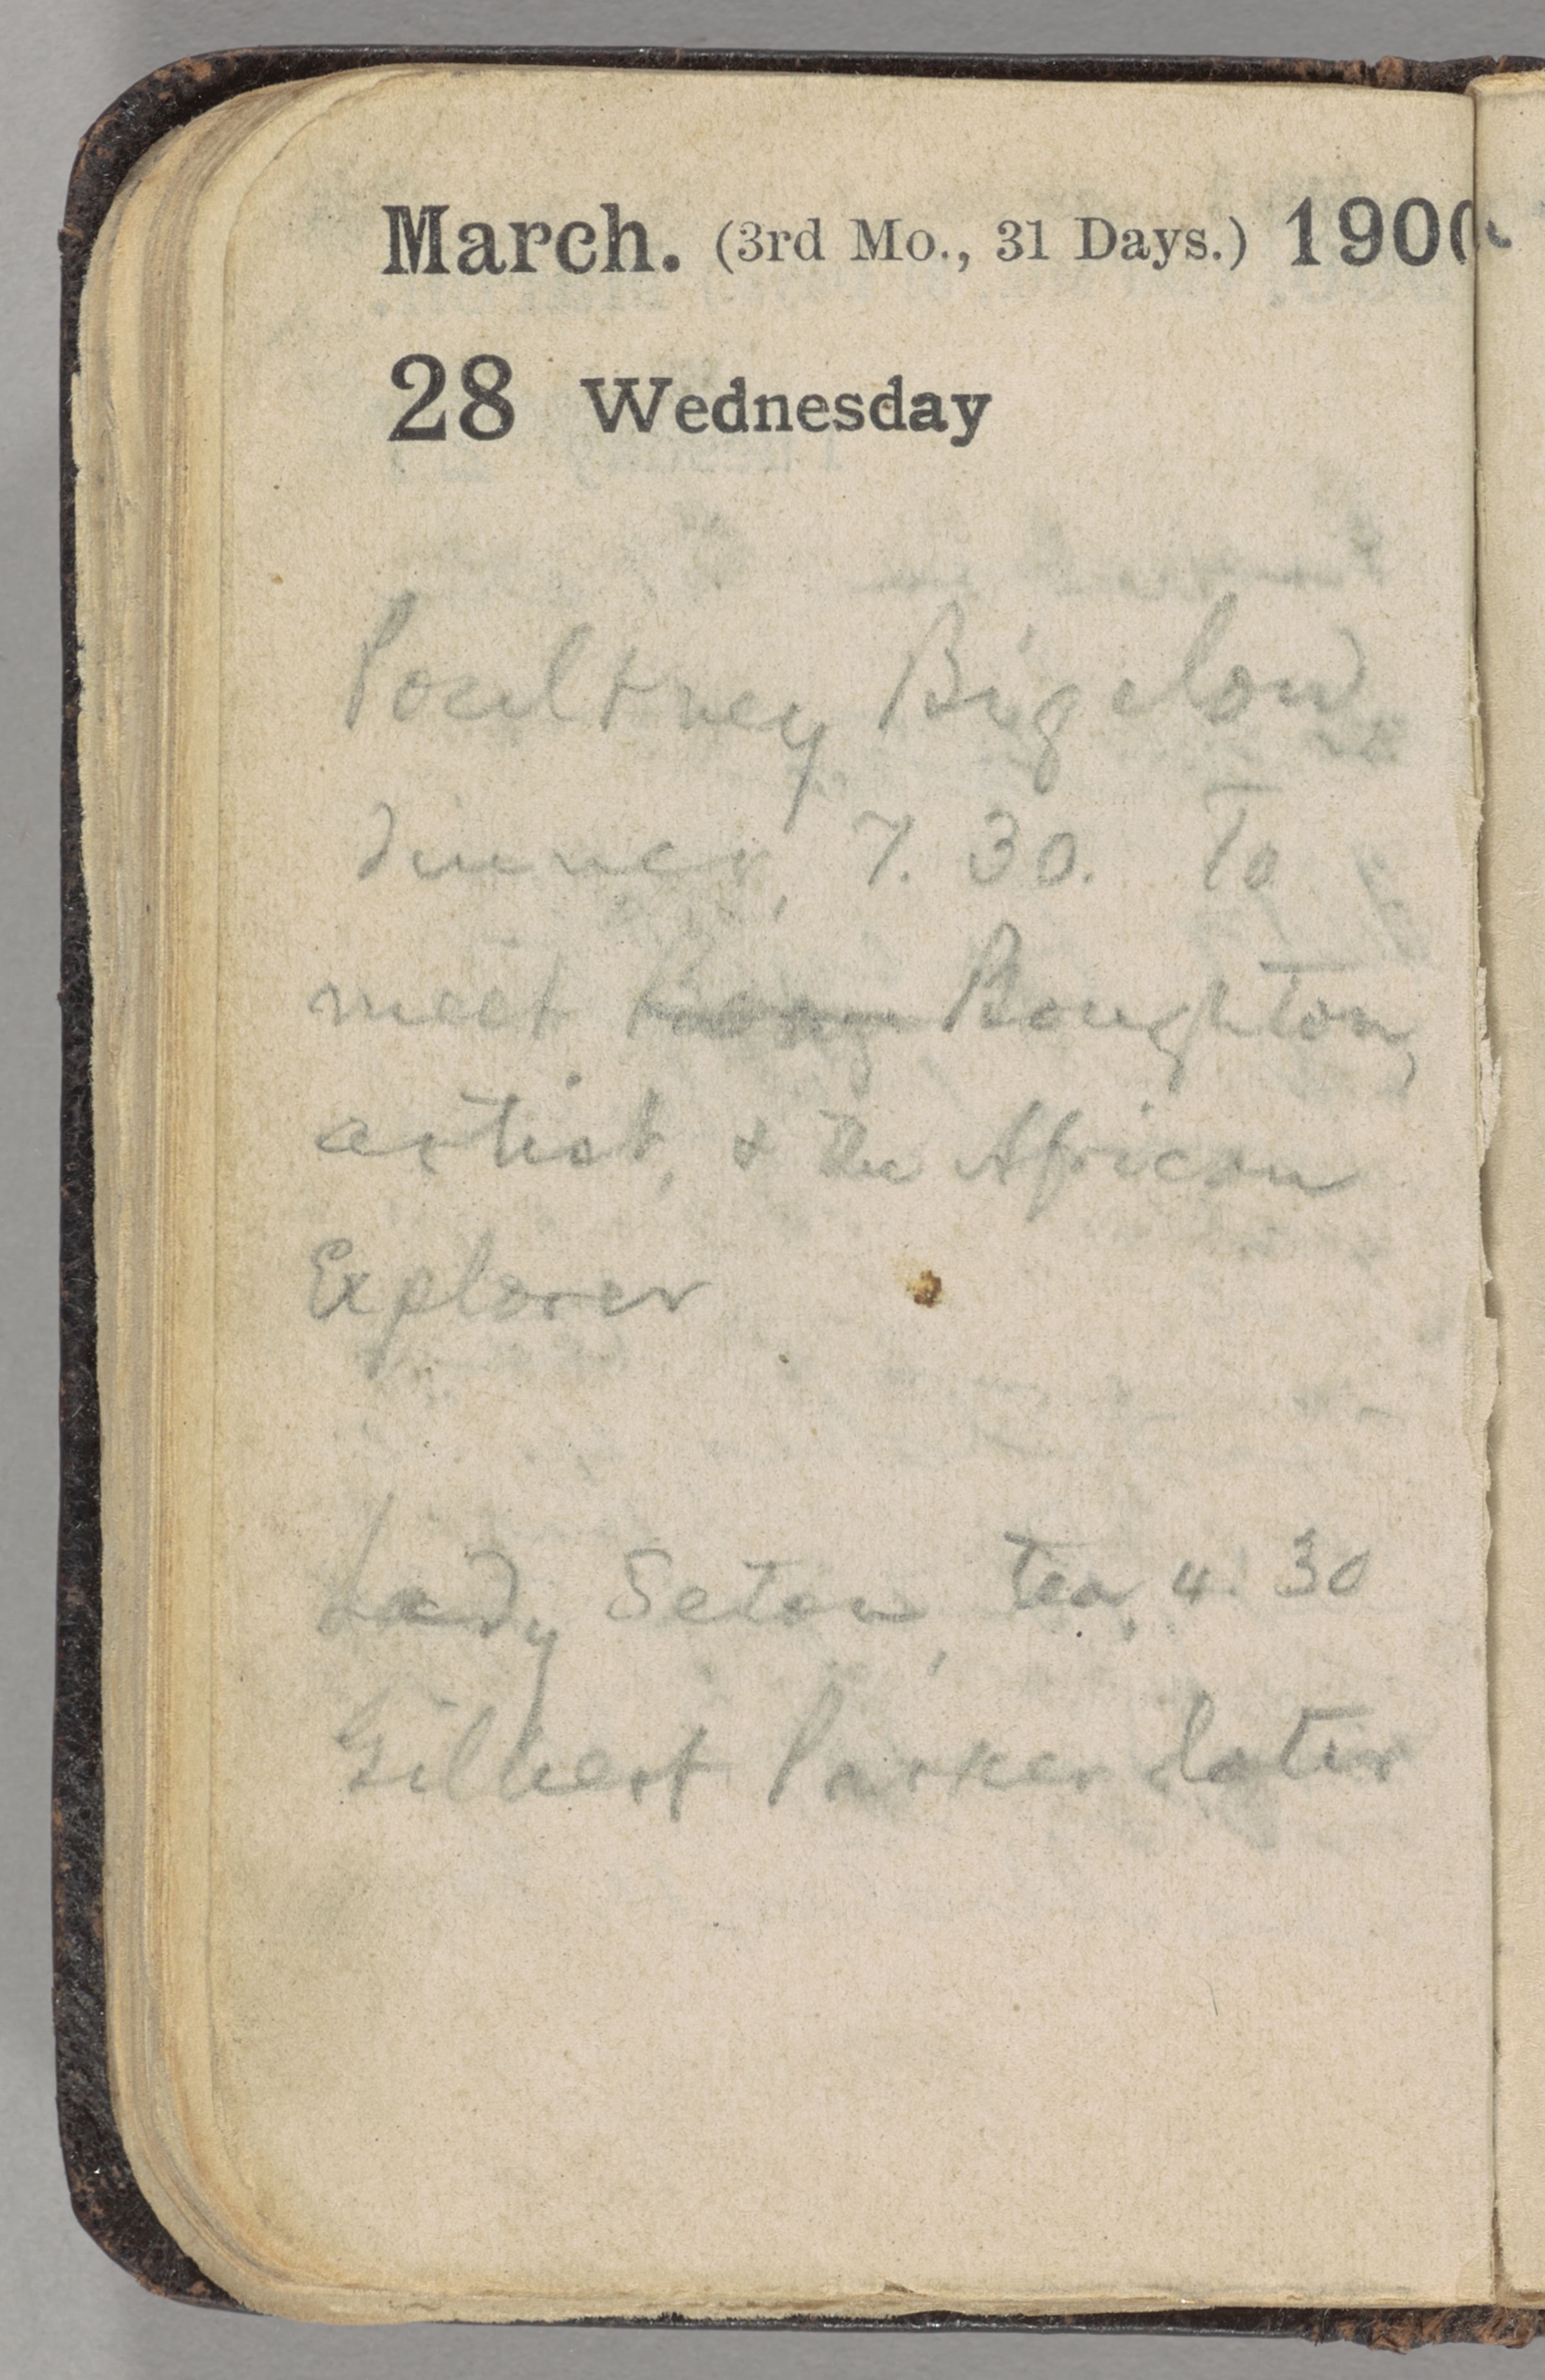 March. (3rd Mo., 31 Days.) 1900.
28 Wednesday
Poultney Bigelow
dinner, 7.30. To
meet Boughton,
artist, & the African
Explorer
Lady Seton, tea, 4.30
Gilbert Parker later